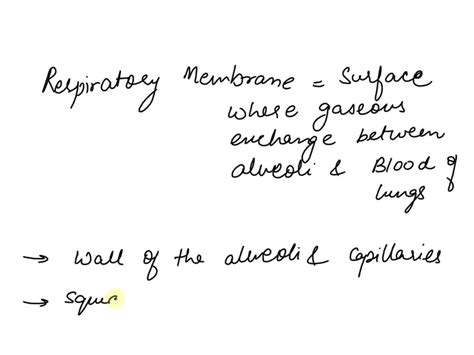 Respiratory Membrane = Surface
where gaseous
exchange between
alveoli & Blood of
lungs
→ Wall of the alveoli & Capillaries
→ Squa